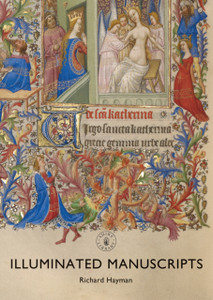 de sca katherina
Virgo sancta katherina
Grecie gemma urbe alex
ILLUMINATED MANUSCRIPTS
Richard Hayman